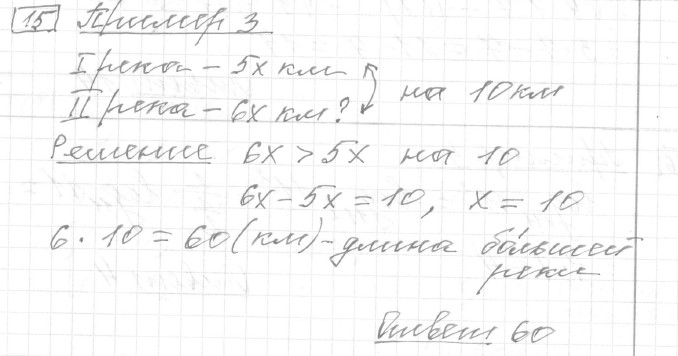 15 Пример 3
I река – 5х км
II река – 6х км? на 10 км
Решение 6х > 5х на 10
6х – 5х = 10, х = 10
6 · 10 = 60 (км) – длина бо́льшей
реки
Ответ: 60